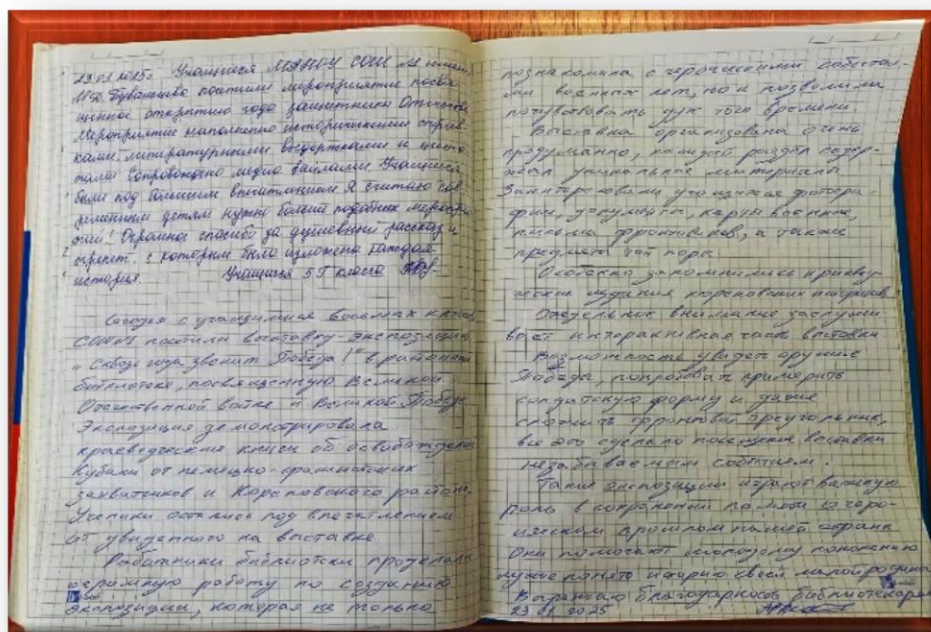 29.01.2025г. Учащиеся МАНОУ СОШ №1 имени
М.Ф. посетили мероприятие посвя-
щенное открытию года защитника Отечества
Мероприятие наполнено историческими справ-
ками, литературными выдержками и
сопровождено медиа файлами. Учащиеся
были под большим впечатлением. Я считаю сов-
ременным детям нужно больше подобных мероп
Огромное спасибо за душевный рассказ и
с которым была изложена каждая
история. Учащиеся 5Г класса
Сегодня с учащимися восьмых классов
СОШ№1 посетили выставку-экспозицию
"Сквозь года звенит Победа!" в районной
библиотеке, посвященную Великой
Отечественной войне и Великой Победе
Экспозиция демонстрировала
краеведческие книги об освобождении
Кубани от немецко-фашистских
захватчиков и Кореновского района.
Ученики остались под впечатлением
от увиденного на выставке.
Работники библиотеки проделали
огромную работу по созданию
экспозиции, которая не только
познакомила с героическими событи-
ями военных лет, но и позволила
почувствовать дух того времени.
Выставка организована очень
продуманно, каждый раздел содер-
жал уникальные материалы.
Заинтересовали уч-ся фотогра
фии, документы, карты военные,
письма фронтовиков, а также
предметы той поры.
Особенно запомнились краевед-
ческие издания кореновских
Отдельное внимание заслужи
вает интерактивная часть выставки
Возможность увидеть оружие
Победы, попробовать примерить
солдатскую форму и даже
сложить фронтовой треугольник,
все это сделало посещение выставки
незабываемым событием.
Такие экспозиции играют важную
роль в сохранении памяти о геро-
ическом прошлом нашей страны
Они помогают молодому поколению
лучше понять историю своей малой родины
Выражаю благодарность библиотекарям
29.01.2025